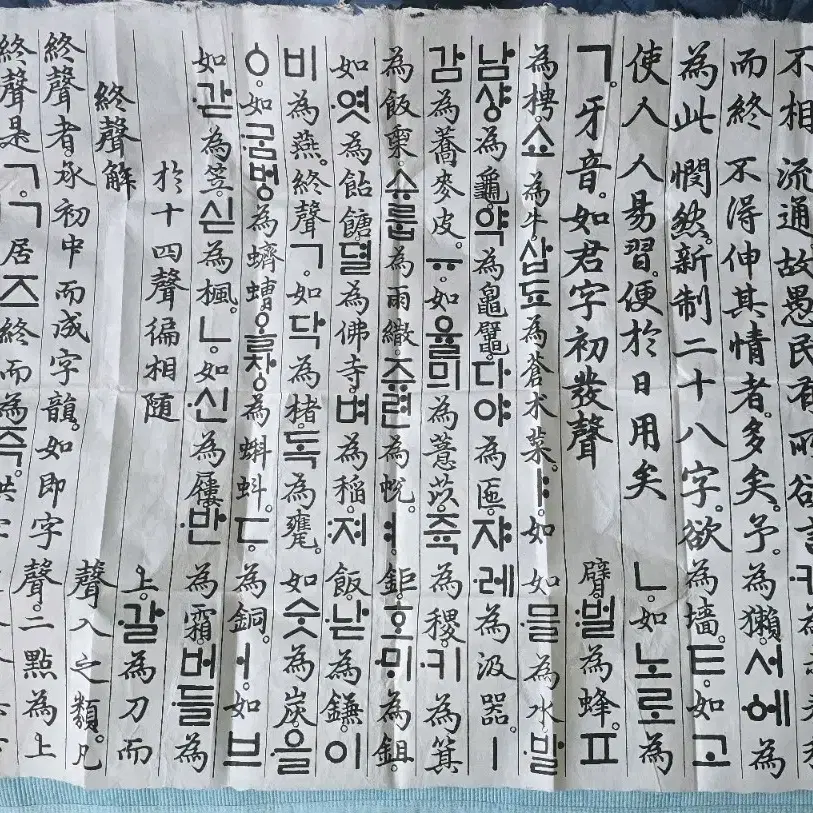 不相流通故愚民有所欲
而終不得伸其情者。多矣。予為獺。서에為
為此憫然。新制二十八字。欲為墻。ㅌ如고
使人人易習。便於日用矣ㄴ。如노로為
ㄱ。牙音。如君字初發聲臂。벌為蜂。ㅍ
為梬。쇼為牛삽됴為蒼朮菜。ㅑ如如믈為水발
남샹為龜약為龜鼊다야為匜쟈레為汲器。ㅣ
감為蕎麥皮。ㅠ如율믜為薏苡。쥭為稷。키為箕
為飯슈룹為雨繖。쥬련為帨。ㅕ鉅호미為鉏
如엿為飴餹뎔為佛寺。벼為稻。져飯낟為鎌이
비為燕。終聲ㄱ。如닥為楮。독為甕。如숫為炭。을
ㆁ。如굼벙為蠐螬올창為蝌蚪。ㄷ為銅。ㅓ如브
如갇為笠。싣為楓。ㄴ如신為屨반為霜。버들為
於十四聲徧相隨上。갈為刀而
終聲解聲入之類。凡
終聲者。承初中而成字韻。如即字聲。二點為上
終聲是ㄱㄱ居ㅈ終而為즉。